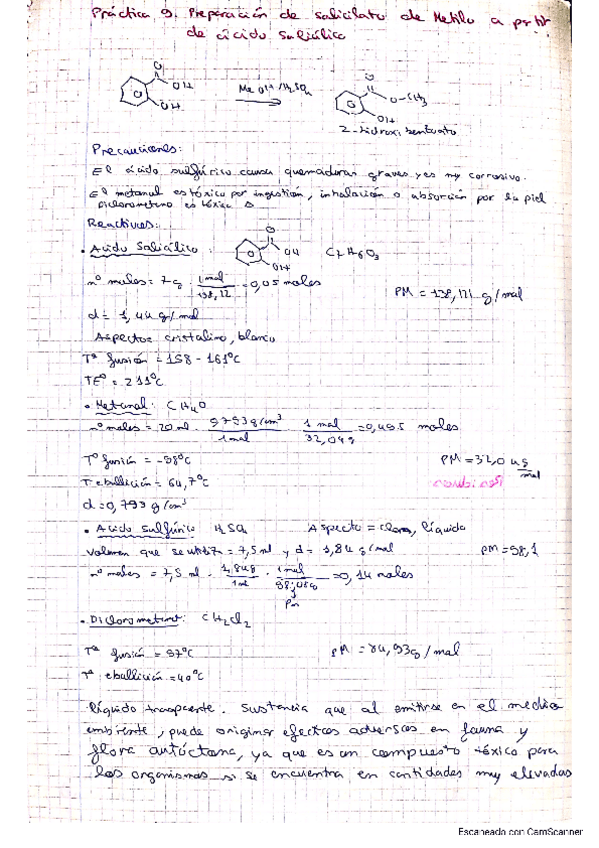 Práctica 9. Preparación de salicilato de Metilo a partir
de ácido salicílico
O
OH
OH
MeOH/H2SO4
O
O-CH3
OH
2-hidroxi benzoato
Precauciones:
El ácido sulfúrico causa quemaduras graves y es muy corrosivo.
El metanol es tóxico por ingestión, inhalación o absorción por la piel
Diclorometano es tóxico
Reactivos:
• Acido Salicílico : C7H6O3
O
OH
OH
nº moles = 7g · 1mol / 138,12 = 0,05 moles
PM = 138,121 g/mol
d = 1,44 g/mol
Aspecto = cristalino, blanco
Tª fusión = 158 - 161ºC
TEº = 211ºC
• Metanol: CH4O
nº moles = 20 ml · 0,793 g/cm3 / 1 mol · 1 mol / 32,04g = 0,495 moles
Tª fusión = -98ºC
PM = 32,04 g/mol
T ebullición = 64,7ºC
d = 0,793 g/cm3
• Acido sulfúrico H2SO4 Aspecto = claro, líquido
Volumen que se utiliza = 7,5 ml y d = 1,84 g/ml PM = 98,1
nº moles = 7,5 ml · 1,84g / 1ml · 1mol / 98,08g = 0,14 moles
Pm
• Diclorometano: CH2Cl2
Tª fusión = 97ºC
PM = 84,93g/mol
Tª ebullición = 40ºC
líquido transparente. Sustancia que al emitirse en el medio
ambiente, puede originar efectos adversos en fauna y
flora autóctona, ya que es un compuesto tóxico para
los organismos si se encuentra en cantidades muy elevadas
Escaneado con CamScanner